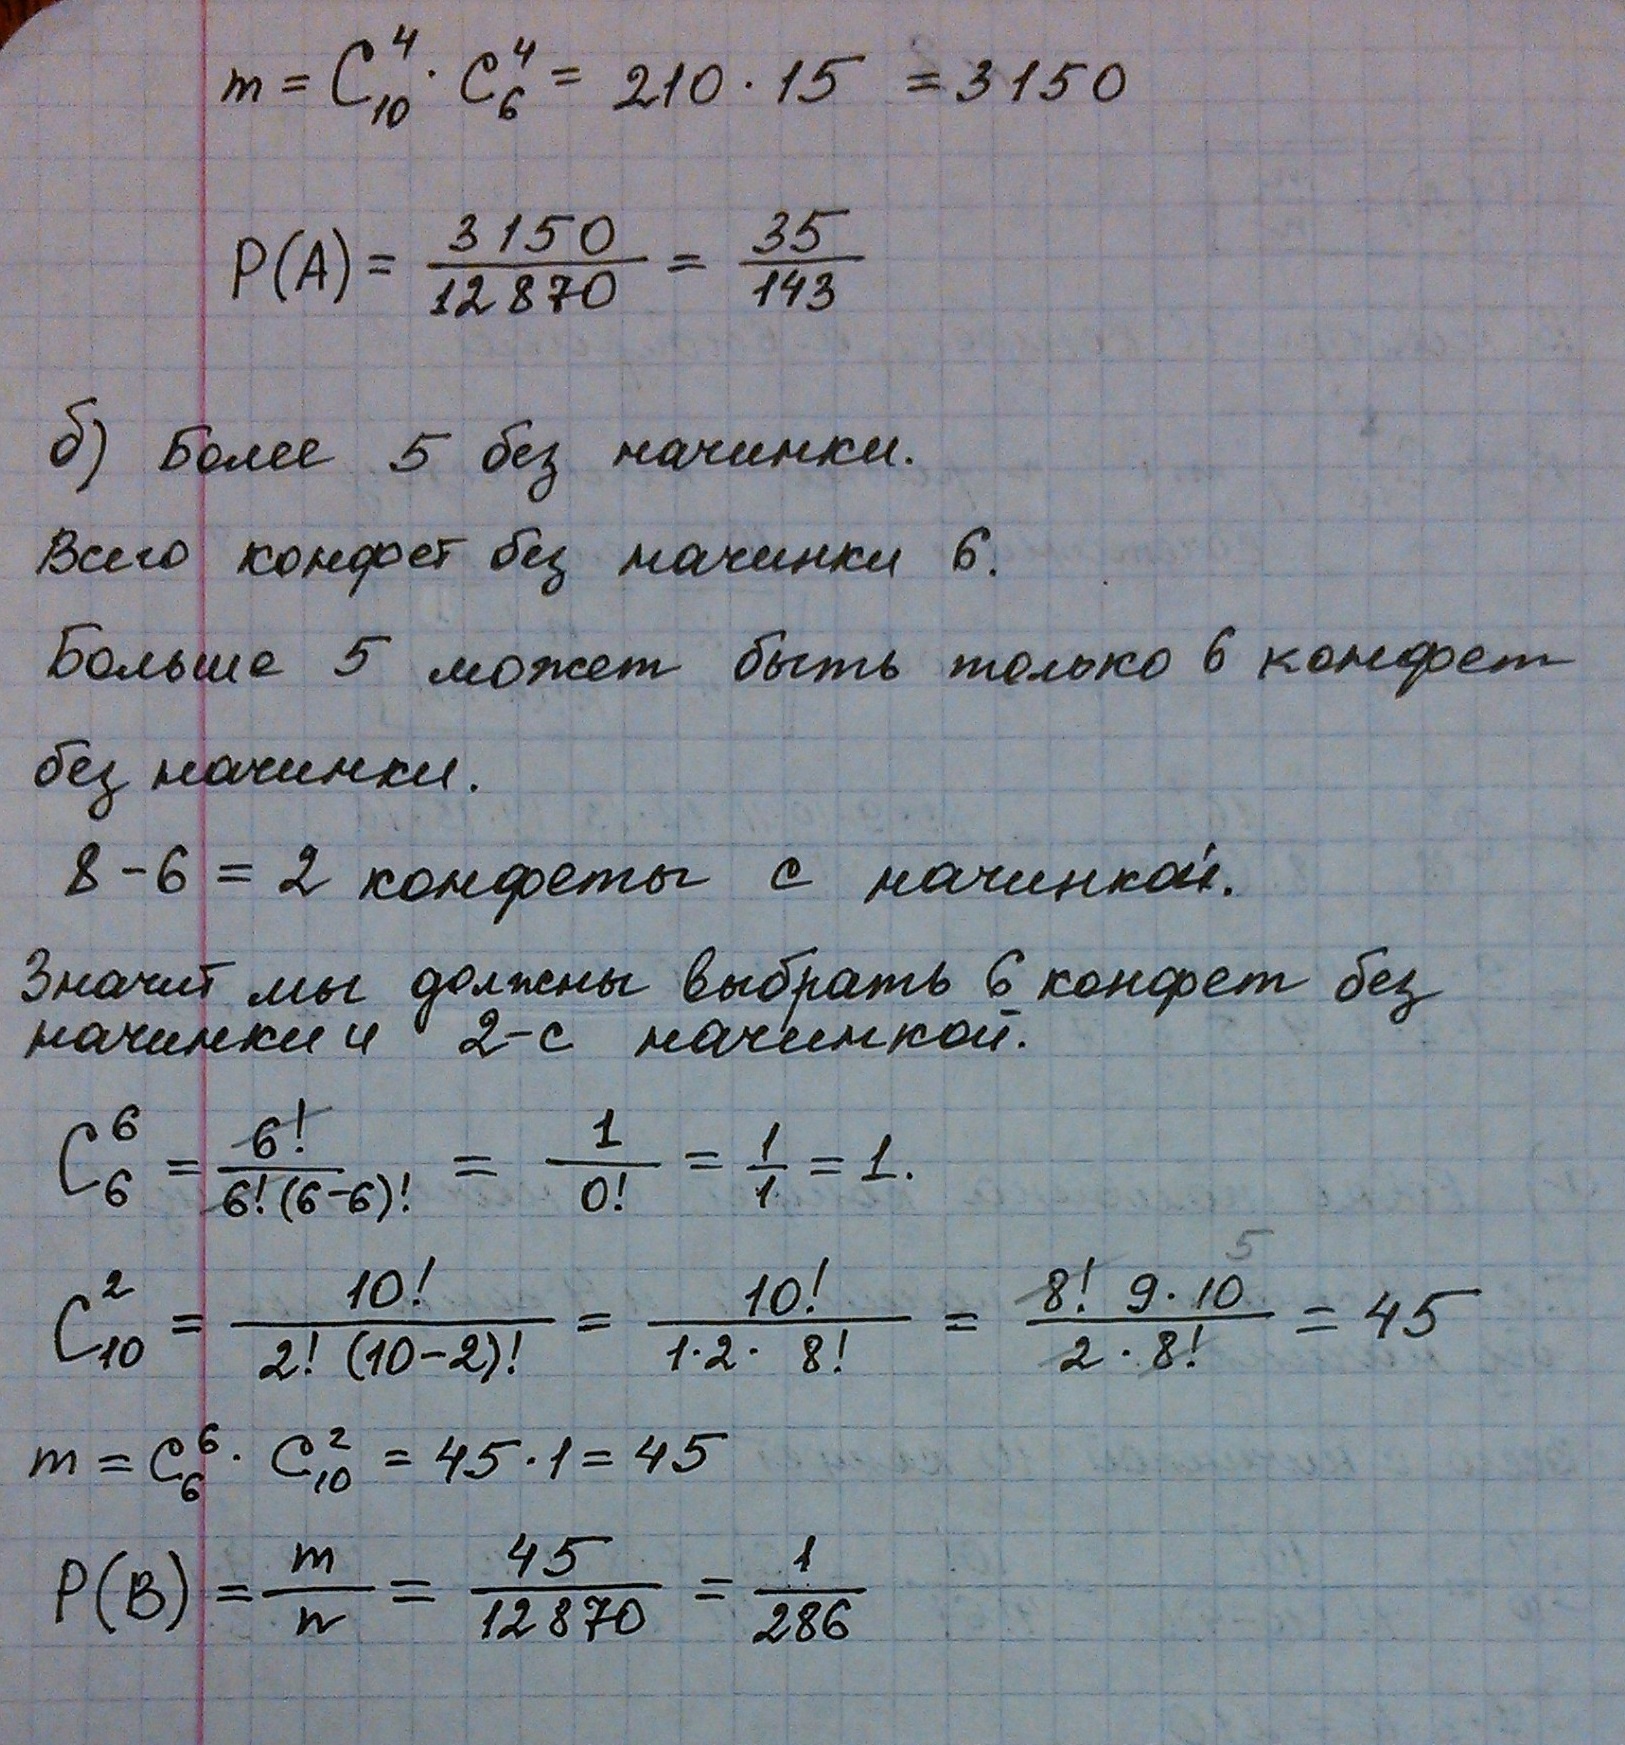 m = C₁₀⁴ · C₆⁴ = 210 · 15 = 3150
P(A) = 3150/12870 = 35/143
б) Более 5 без начинки.
Всего конфет без начинки 6.
Больше 5 может быть только 6 конфет
без начинки.
8 - 6 = 2 конфеты с начинкой.
Значит мы должны выбрать 6 конфет без
начинки и 2-с начинкой.
C₆⁶ = 6!/6!(6-6)! = 1/0! = 1/1 = 1.
C₁₀² = 10!/2! (10-2)! = 10!/1·2· 8! = 8! 9·10 5/2 · 8! = 45
m = C₆⁶ · C₁₀² = 45 · 1 = 45
P(B) = m/n = 45/12870 = 1/286